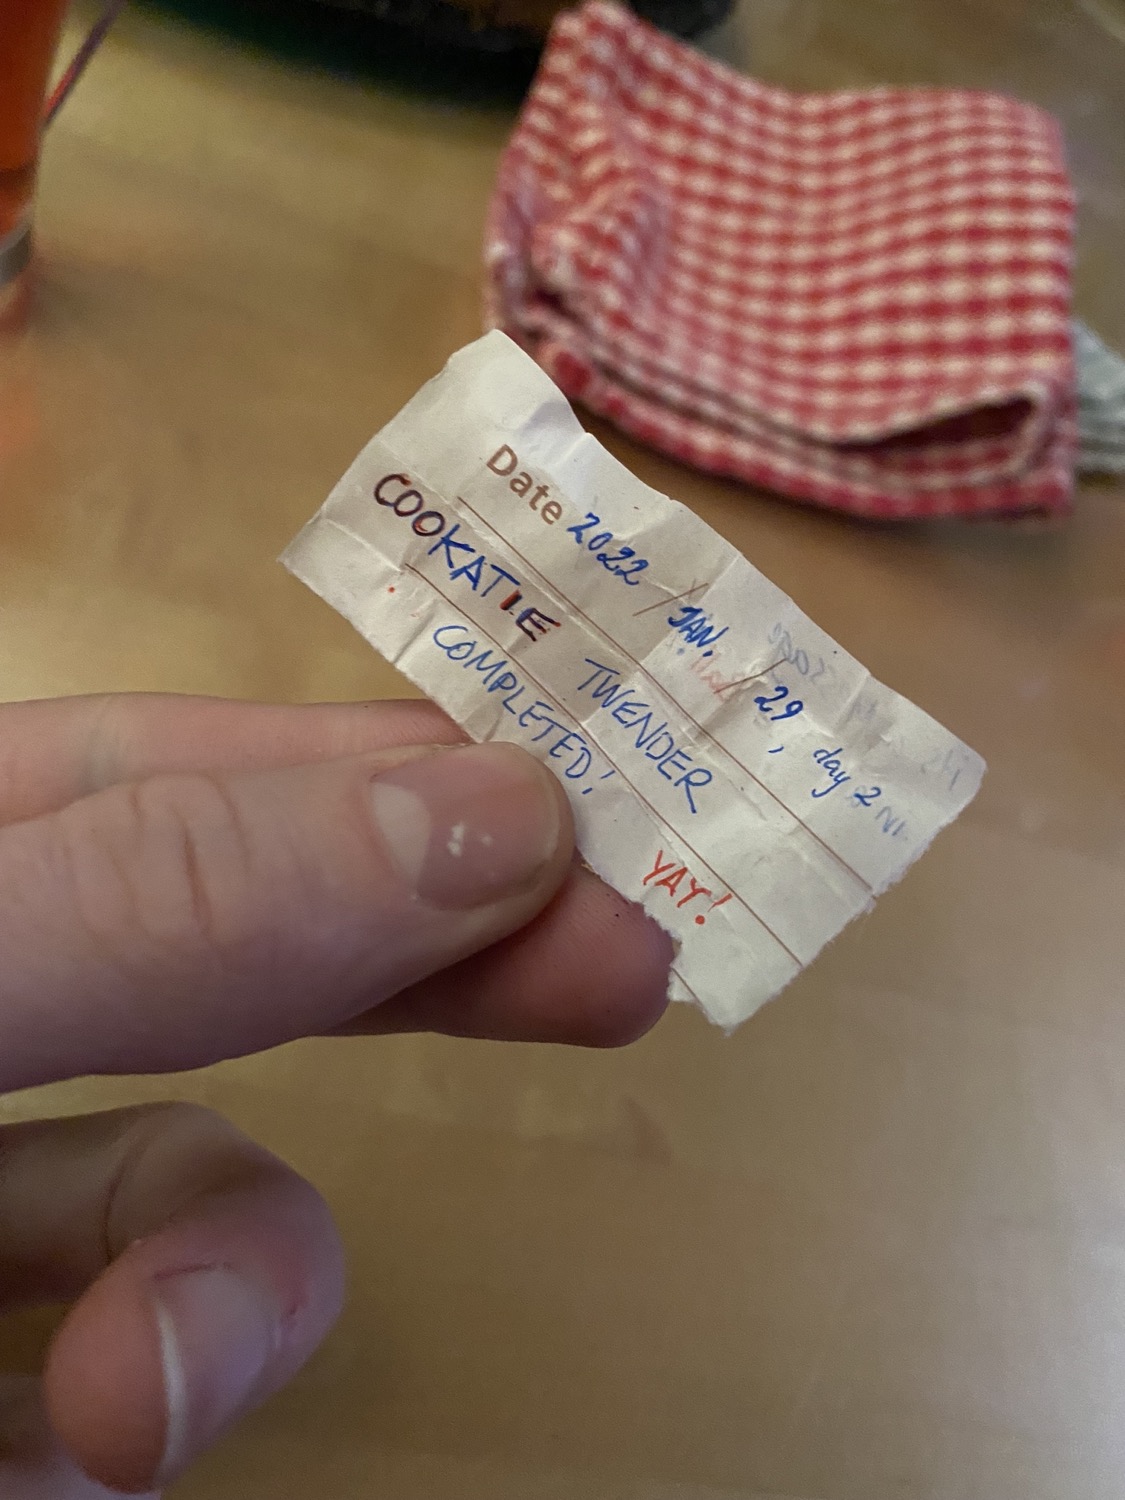 Date 2022 / JAN. / 29, day 2
COOKATIE TWENDER
COMPLETED!
YAY!